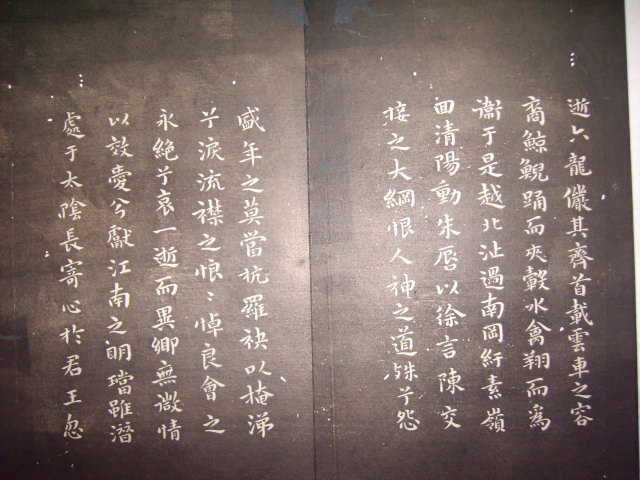 逝六龍儼其齊首載雲車之容
裔鯨鯢踊而夾轂水禽翔而為
衞于是越北沚過南岡紆素嶺
囬清陽動朱唇以徐言陳交
接之大綱恨人神之道殊兮怨
盛年之莫當抗羅袂以掩涕
兮淚流襟之悢〻悼良會之
永絕兮哀一逝而異鄉無微情
以效愛兮獻江南之明璫雖潛
處于太陰長寄心於君王忽